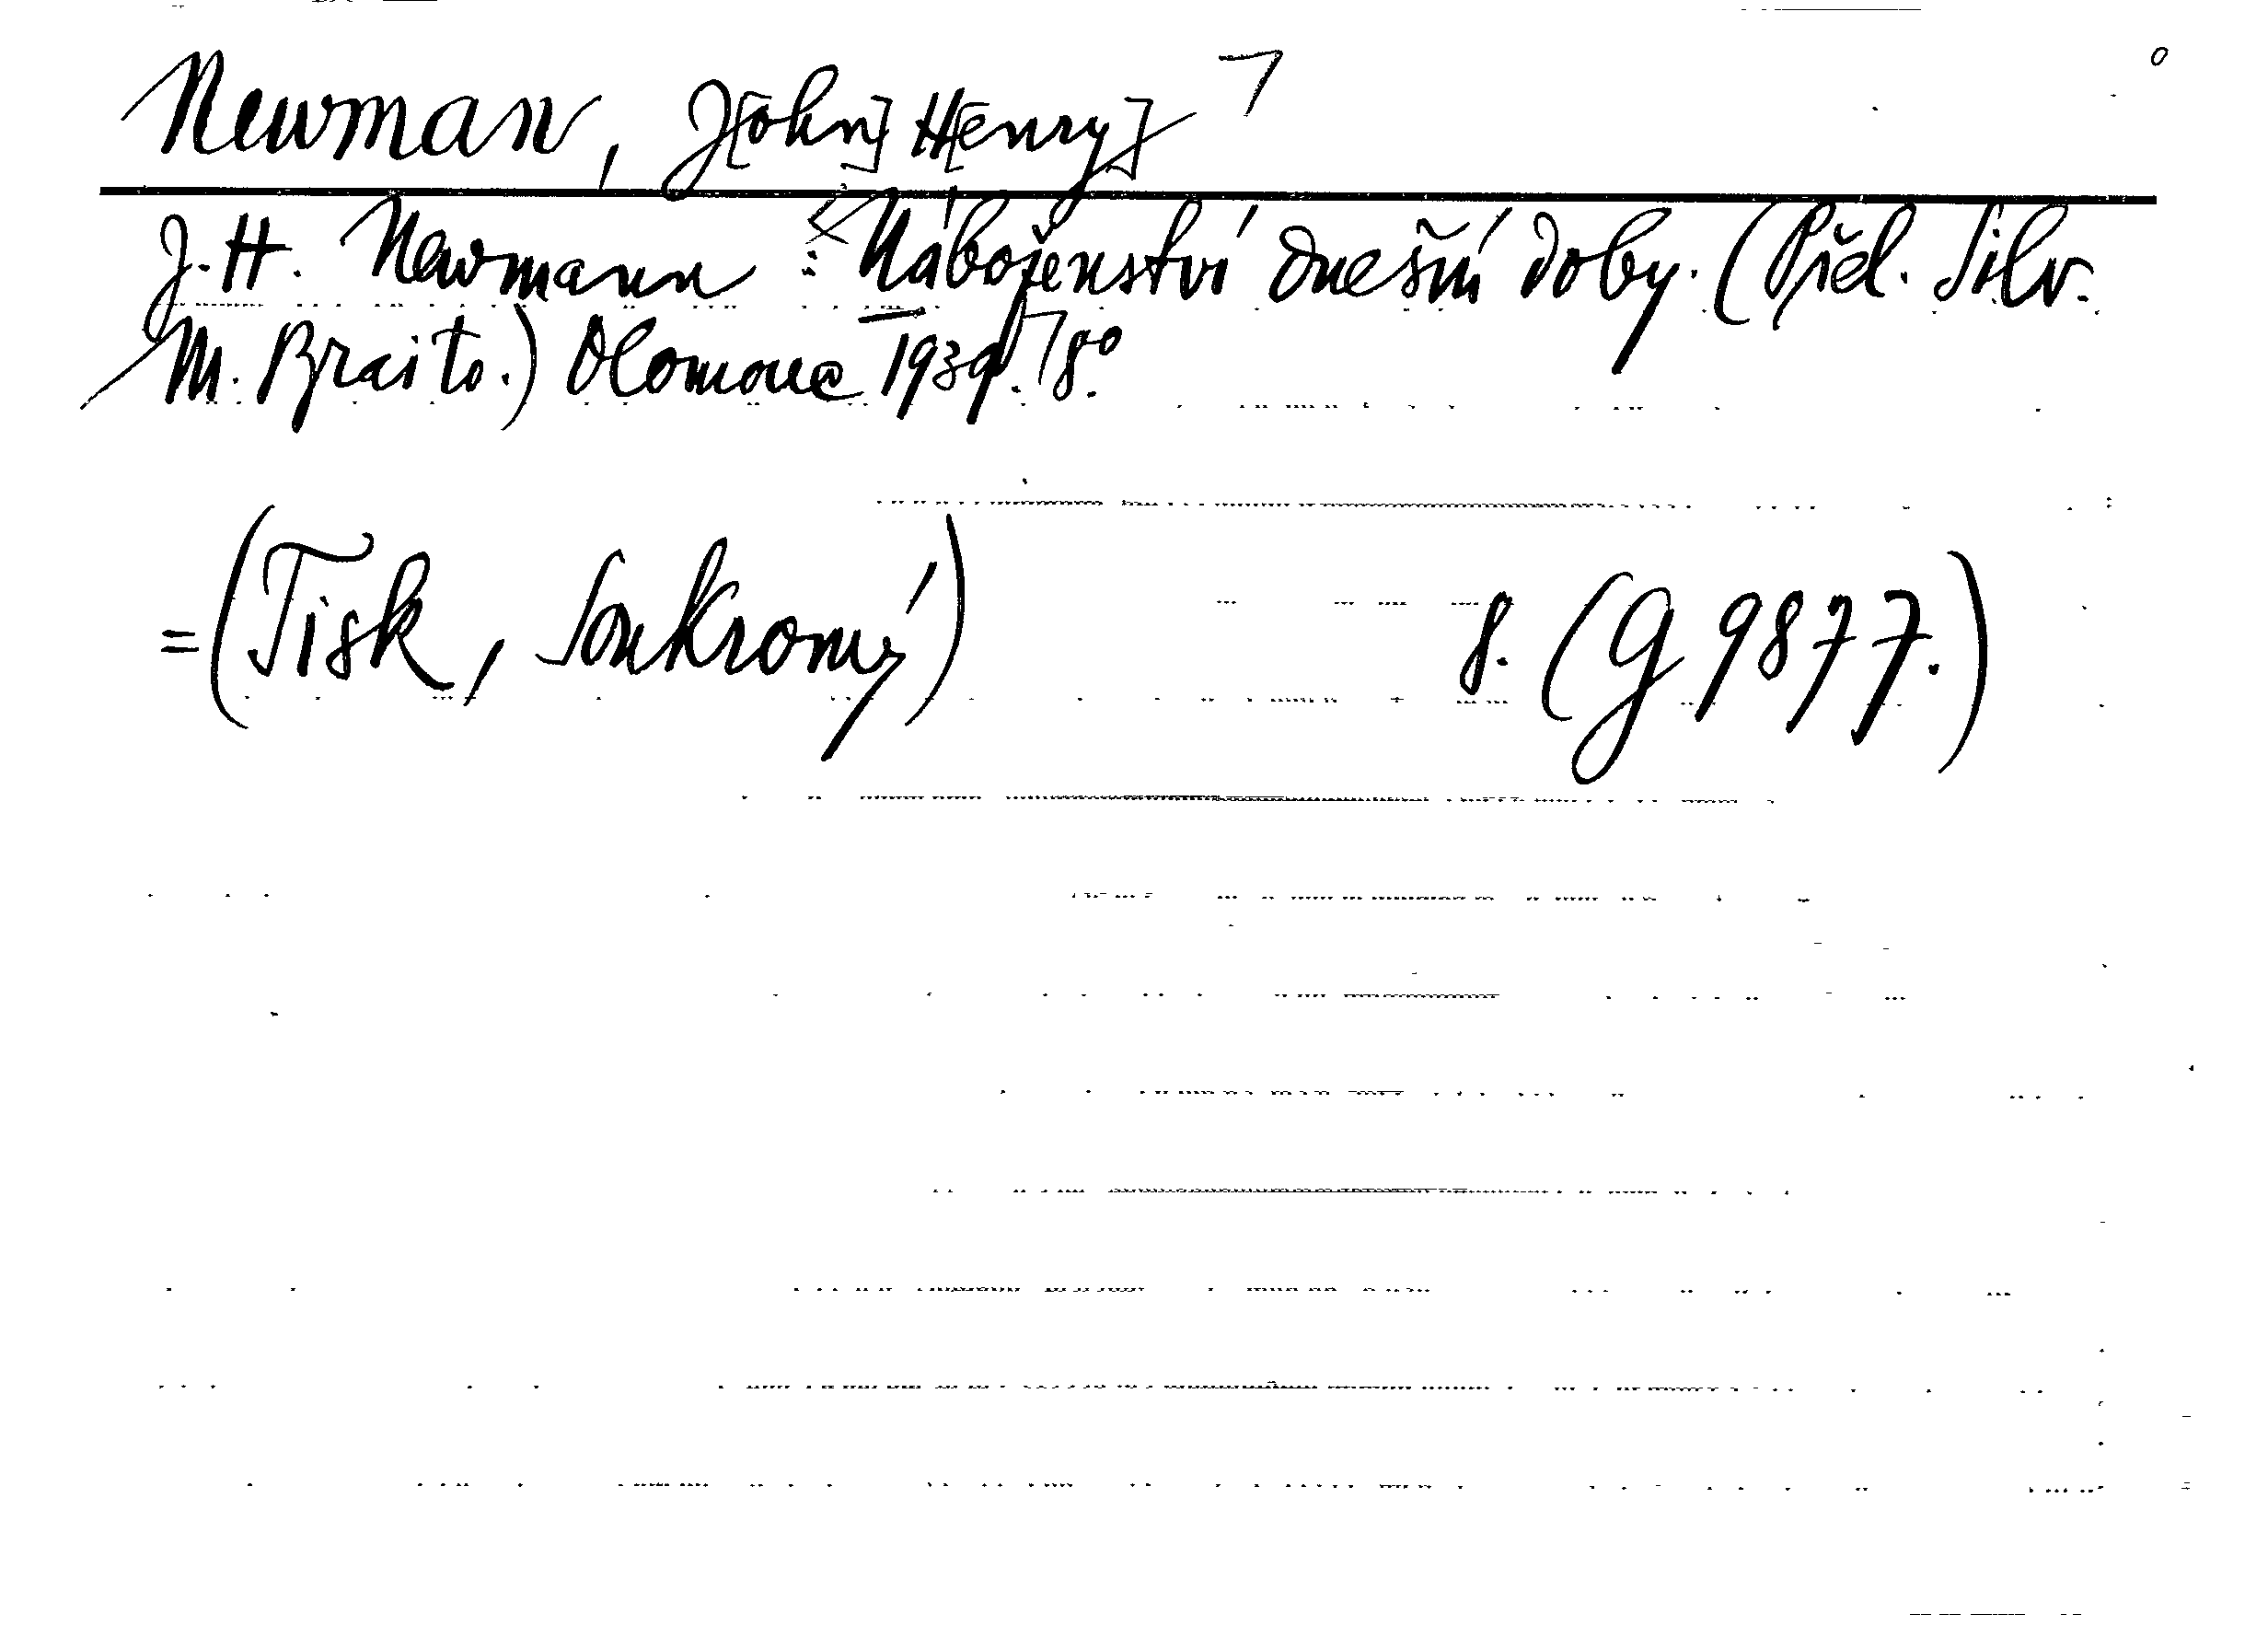 Newman, J[ohn] H[enry]
J. H. Newmann : Náboženství dnešní doby. (Přel. Silv.
M. Braito.) Olomouc 1939. 8°.
=(Tisk, Soukromý) 8. (G 9877.)